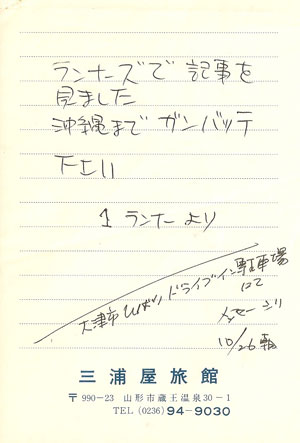 ランナーズで 記事を
見ました
沖縄まで ガンバッテ
下さい
1 ランナーより
大津市 ひばり ドライブイン駐車場
にて
メッセージ
10/26 朝
三浦屋旅館
〒990-23 山形市蔵王温泉30-1
TEL (0236) 94-9030